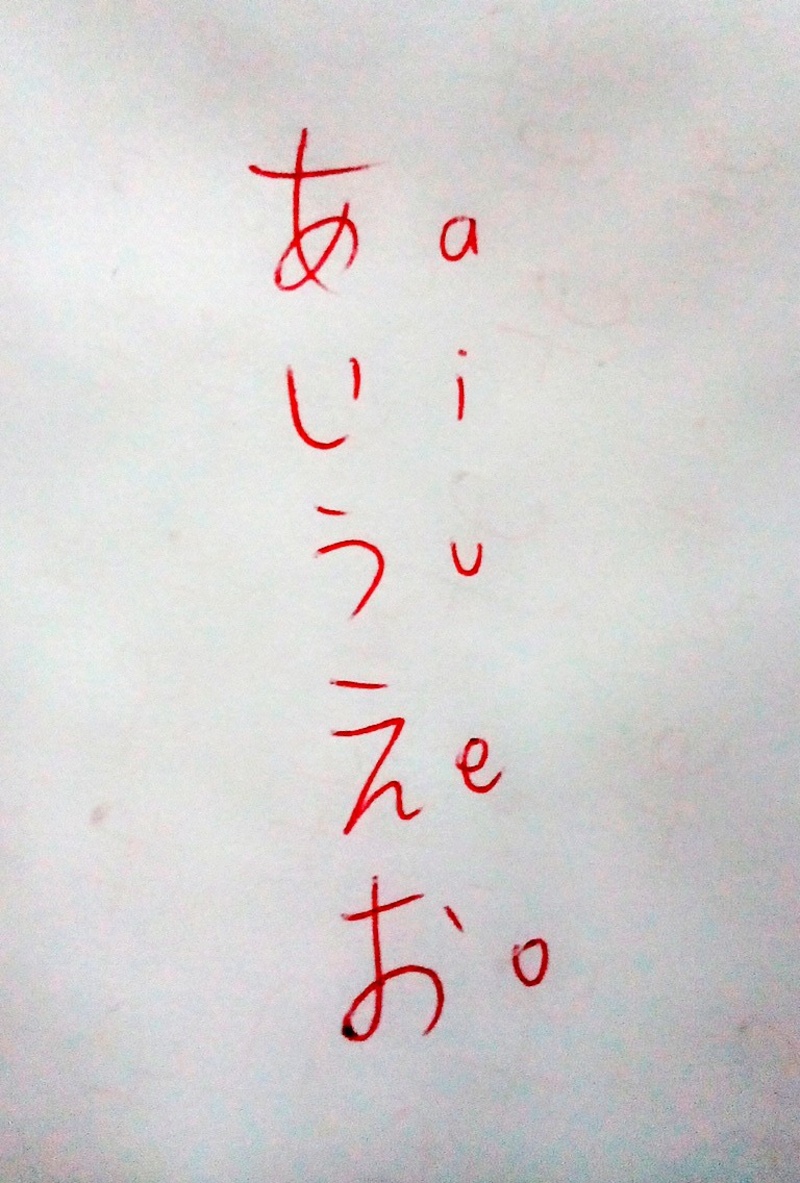 あ a
い i
う u
え e
お o